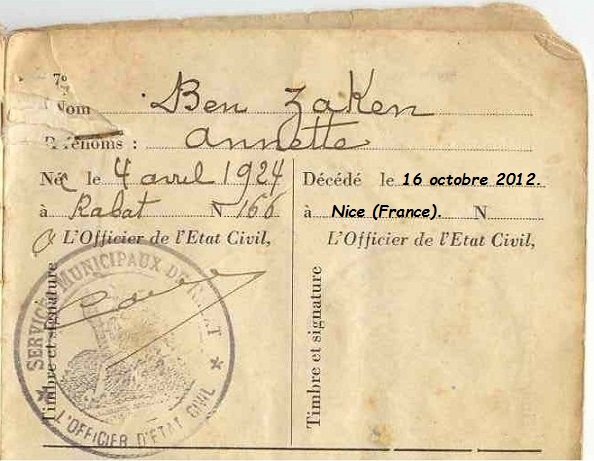 7º
Nom Ben Zaken
Prénoms : Annette
Née le 4 avril 1924
à Rabat N 166
L'Officier de l'Etat Civil,
Timbre et signature
SERVICES MUNICIPAUX DE RABAT
L'OFFICIER D'ETAT CIVIL
Décédé le 16 octobre 2012.
à Nice (France). N
L'Officier de l'Etat Civil,
Timbre et signature